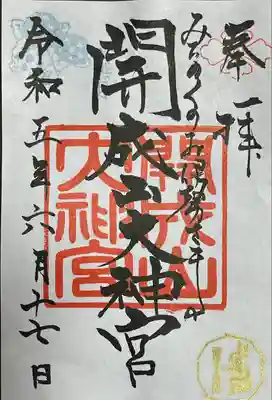 奉拝
みちのくのお伊勢さま
開成山大神宮
令和五年六月十七日
開成山
大神宮